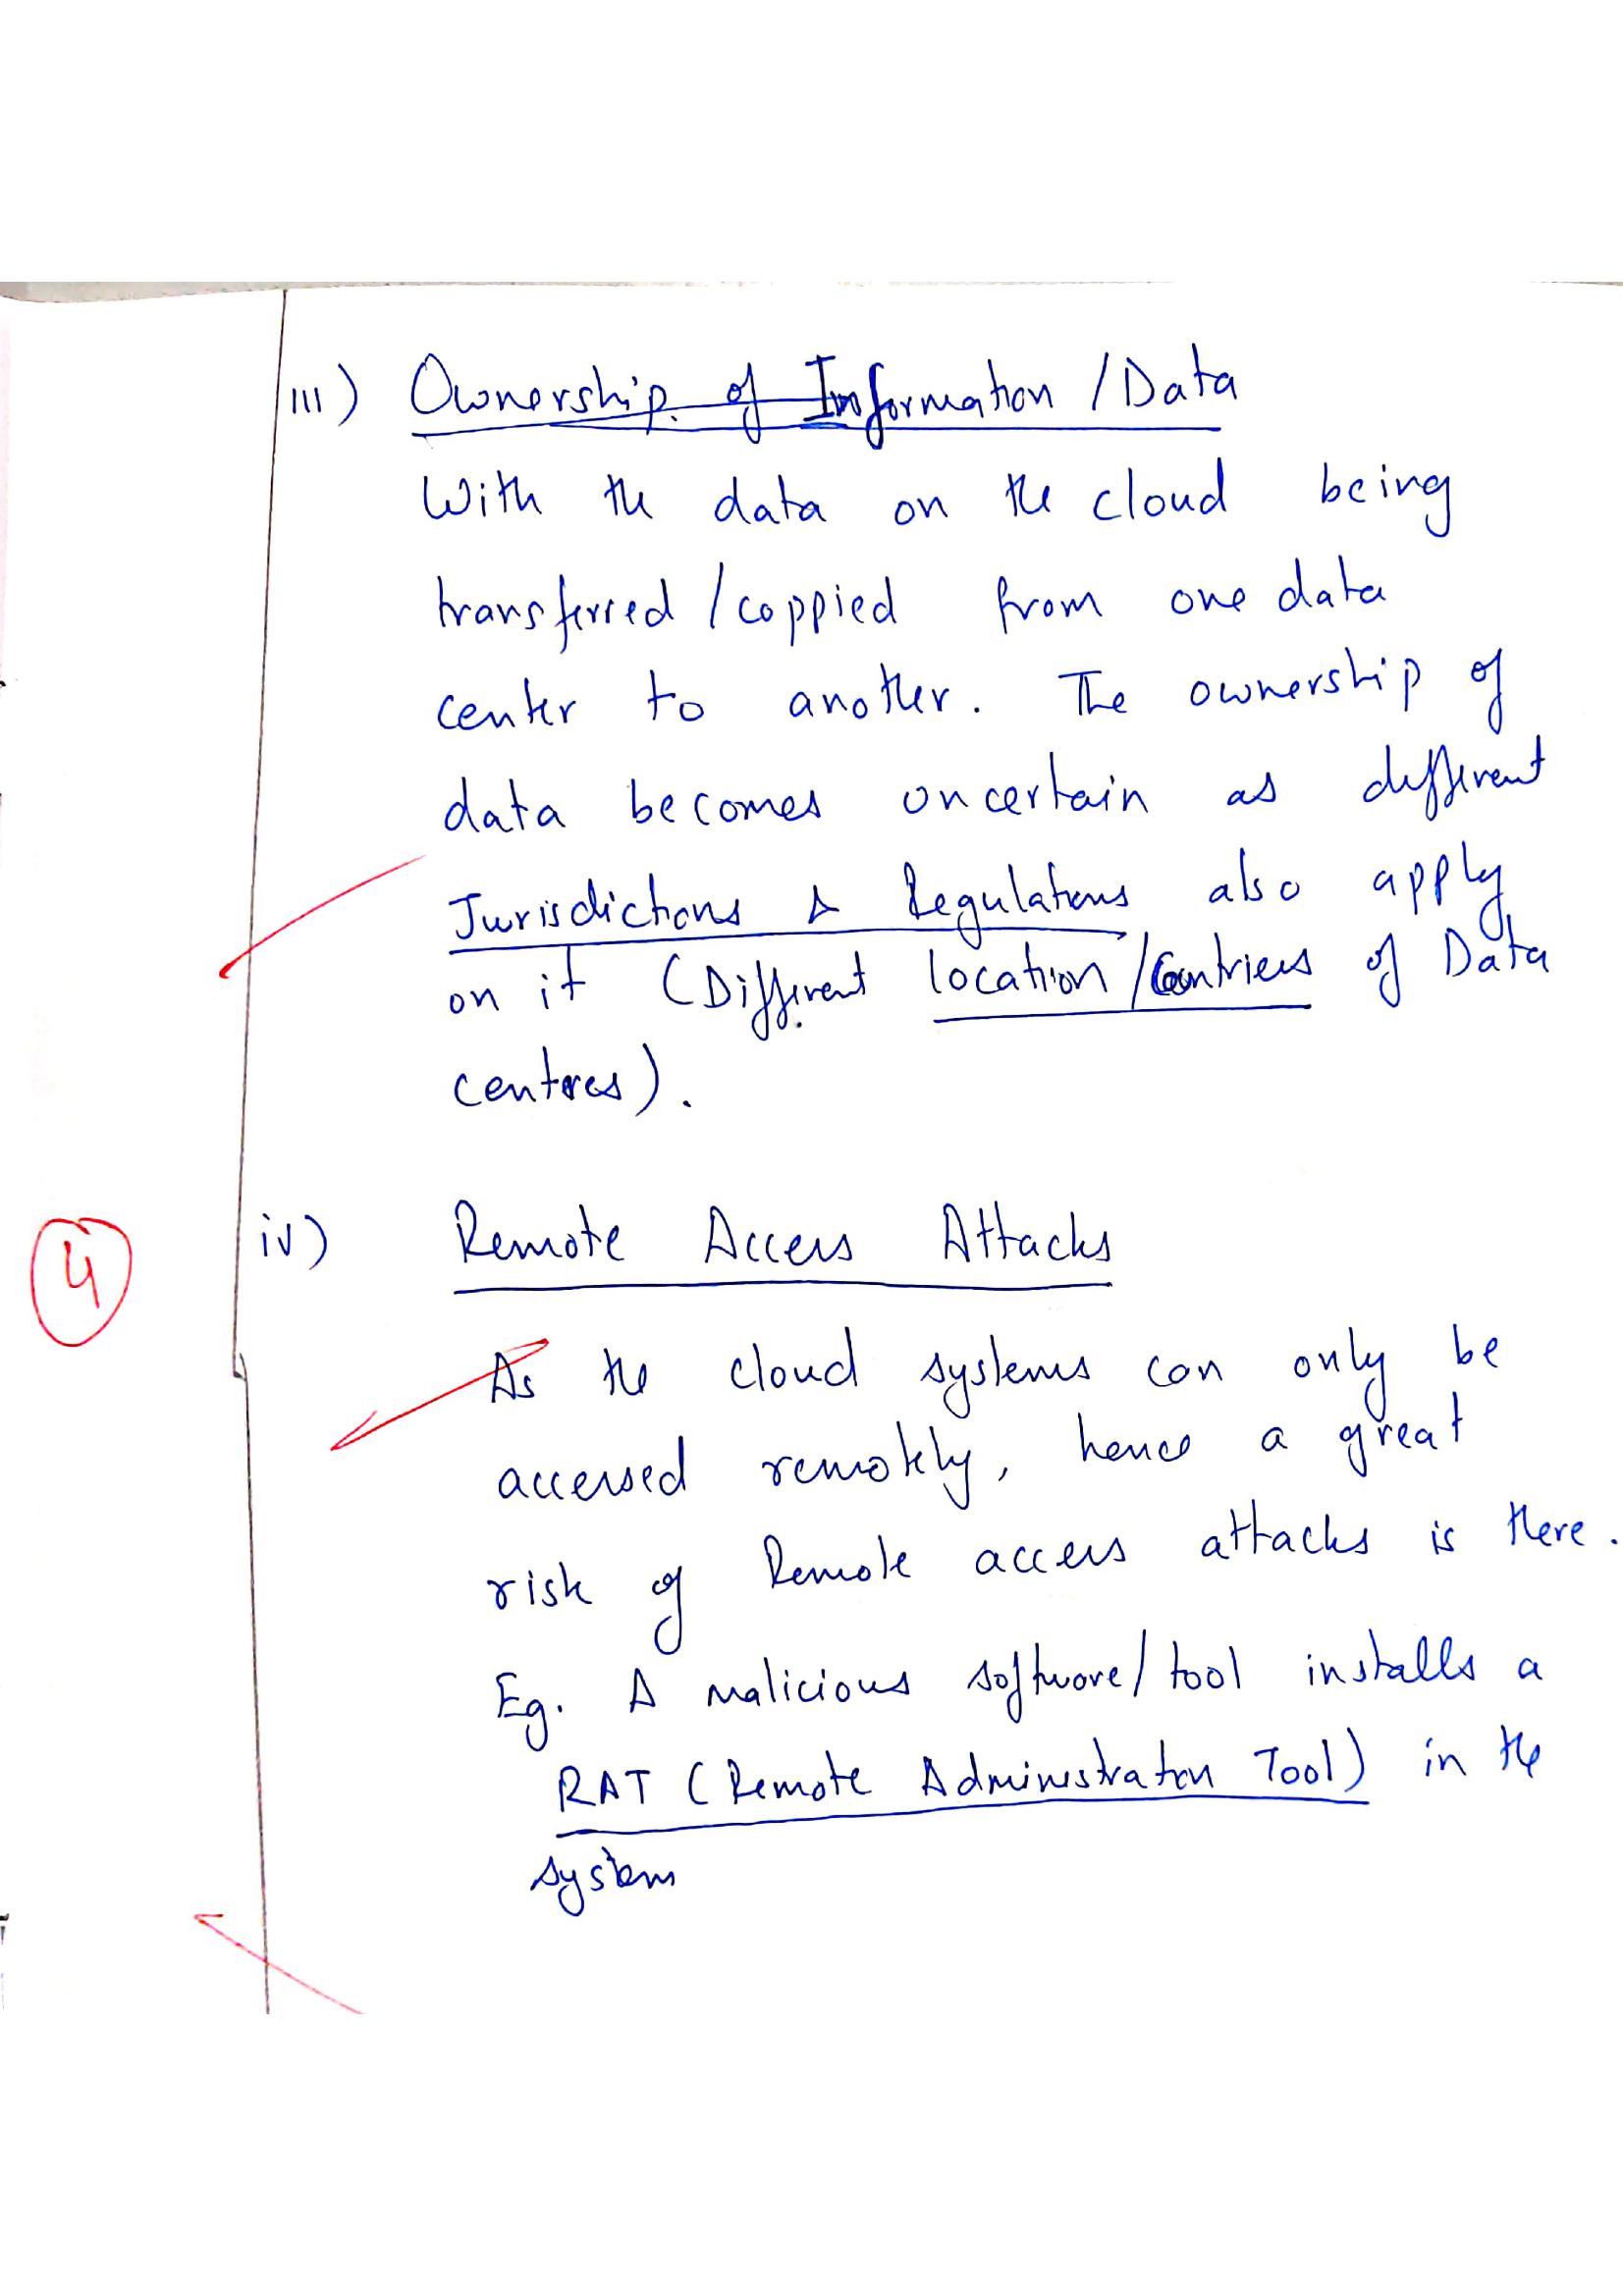 iii) Ownership of Information / Data
With the data on the cloud being
transferred / coppied from one data
center to another. The ownership of
data becomes uncertain as different
Jurisdictions & Regulations also apply
on it (Different location / Countries of Data
centres).
4
iv) Remote Access Attacks
As the cloud systems can only be
accessed remotely, hence a great
risk of Remote access attacks is there.
Eg. A malicious software / tool installs a
RAT (Remote Administration Tool) in the
system